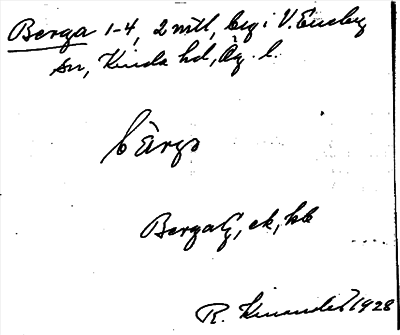 Berga 1-4, 2 mtl, beg i V. Eneby
sn, Kinda hd, Ög. l.
bärgs
Berga G, ek, hk
R. Kinander 1928